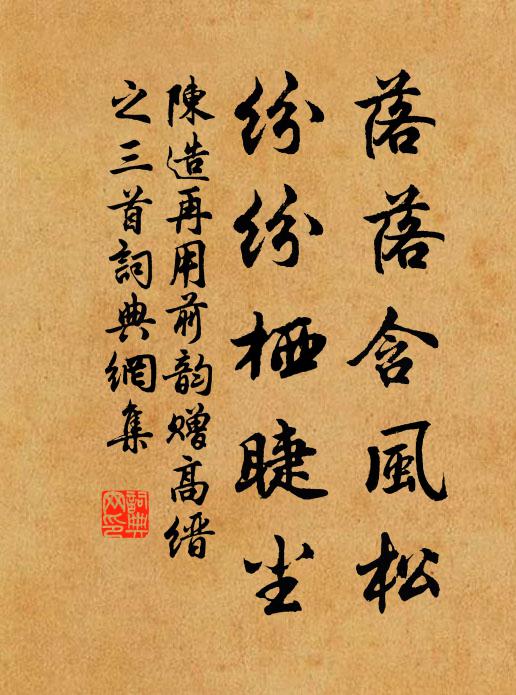 落落含風松
纷纷栖睫尘
陳造再用前韵赠高缙
之三首詞典網集
詞典網印